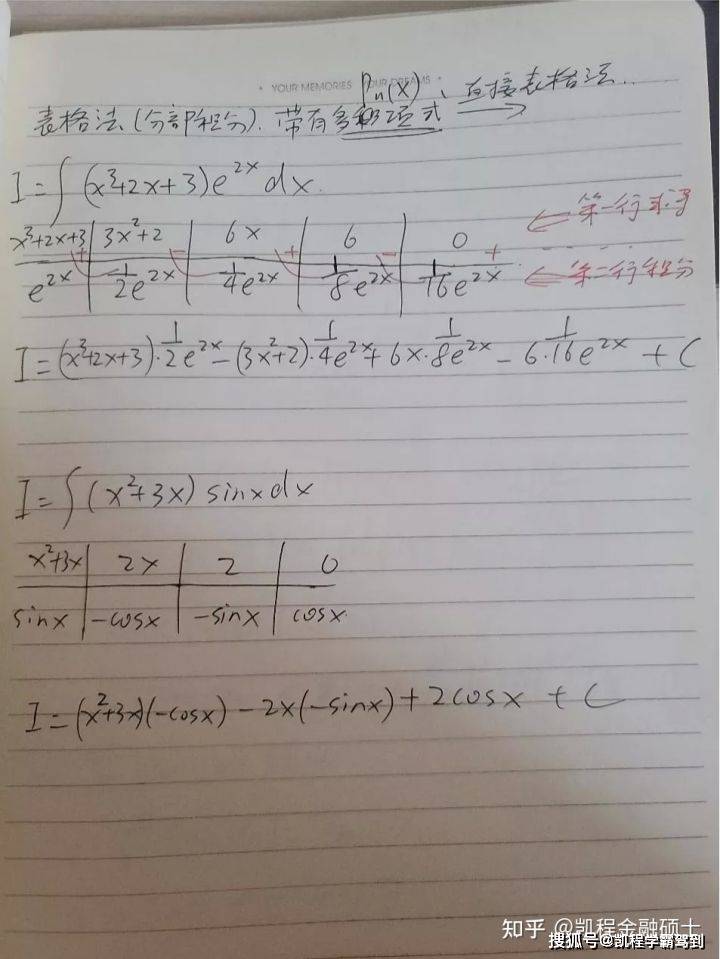 YOUR MEMORIES YOUR DREAMS
表格法(分部积分). 带有多项式 Pn(x)、直接表格法..
I=∫(x³+2x+3)e^{2x}dx.
x³+2x+3 | 3x²+2 | 6x | 6 | 0 ← 第一行求导
+ - + - +
e^{2x} | 1/2 e^{2x} | 1/4 e^{2x} | 1/8 e^{2x} | 1/16 e^{2x} ← 第二行积分
I=(x³+2x+3)·1/2 e^{2x}-(3x²+2)·1/4 e^{2x}+6x·1/8 e^{2x}-6·1/16 e^{2x}+C
I=∫(x²+3x)sinxdx
x²+3x | 2x | 2 | 0
sinx | -cosx | -sinx | cosx.
I=(x²+3x)(-cosx)-2x(-sinx)+2cosx+C
知乎 @凯程金融硕士
搜狐号@凯程学霸驾到